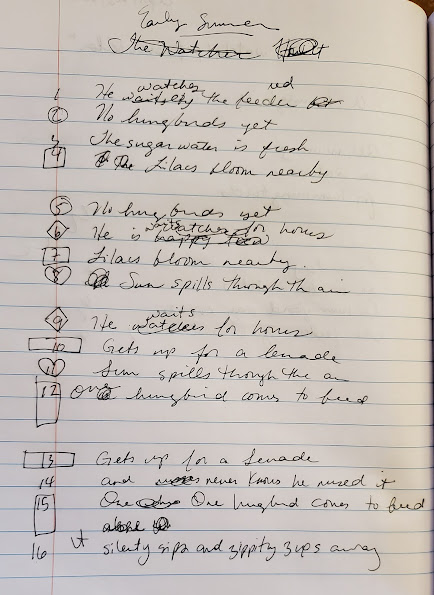 Early Summer
The Watcher
1 He watches the red feeder
2 No hungbirds yet
3 The sugar water is fresh
4 Lilacs bloom nearby
5 No hungbirds yet
6 He waits for hours
7 Lilacs bloom nearby.
8 Sun spills through th air
9 He waits for hours
10 Gets up for a lenade
11 Sun spills though the air
12 One hungbird comes to feed
13 Gets up for a lenade
14 and never knows he missed it
15 One One hugbird comes to feed
16 It silently sips and zippity zups away